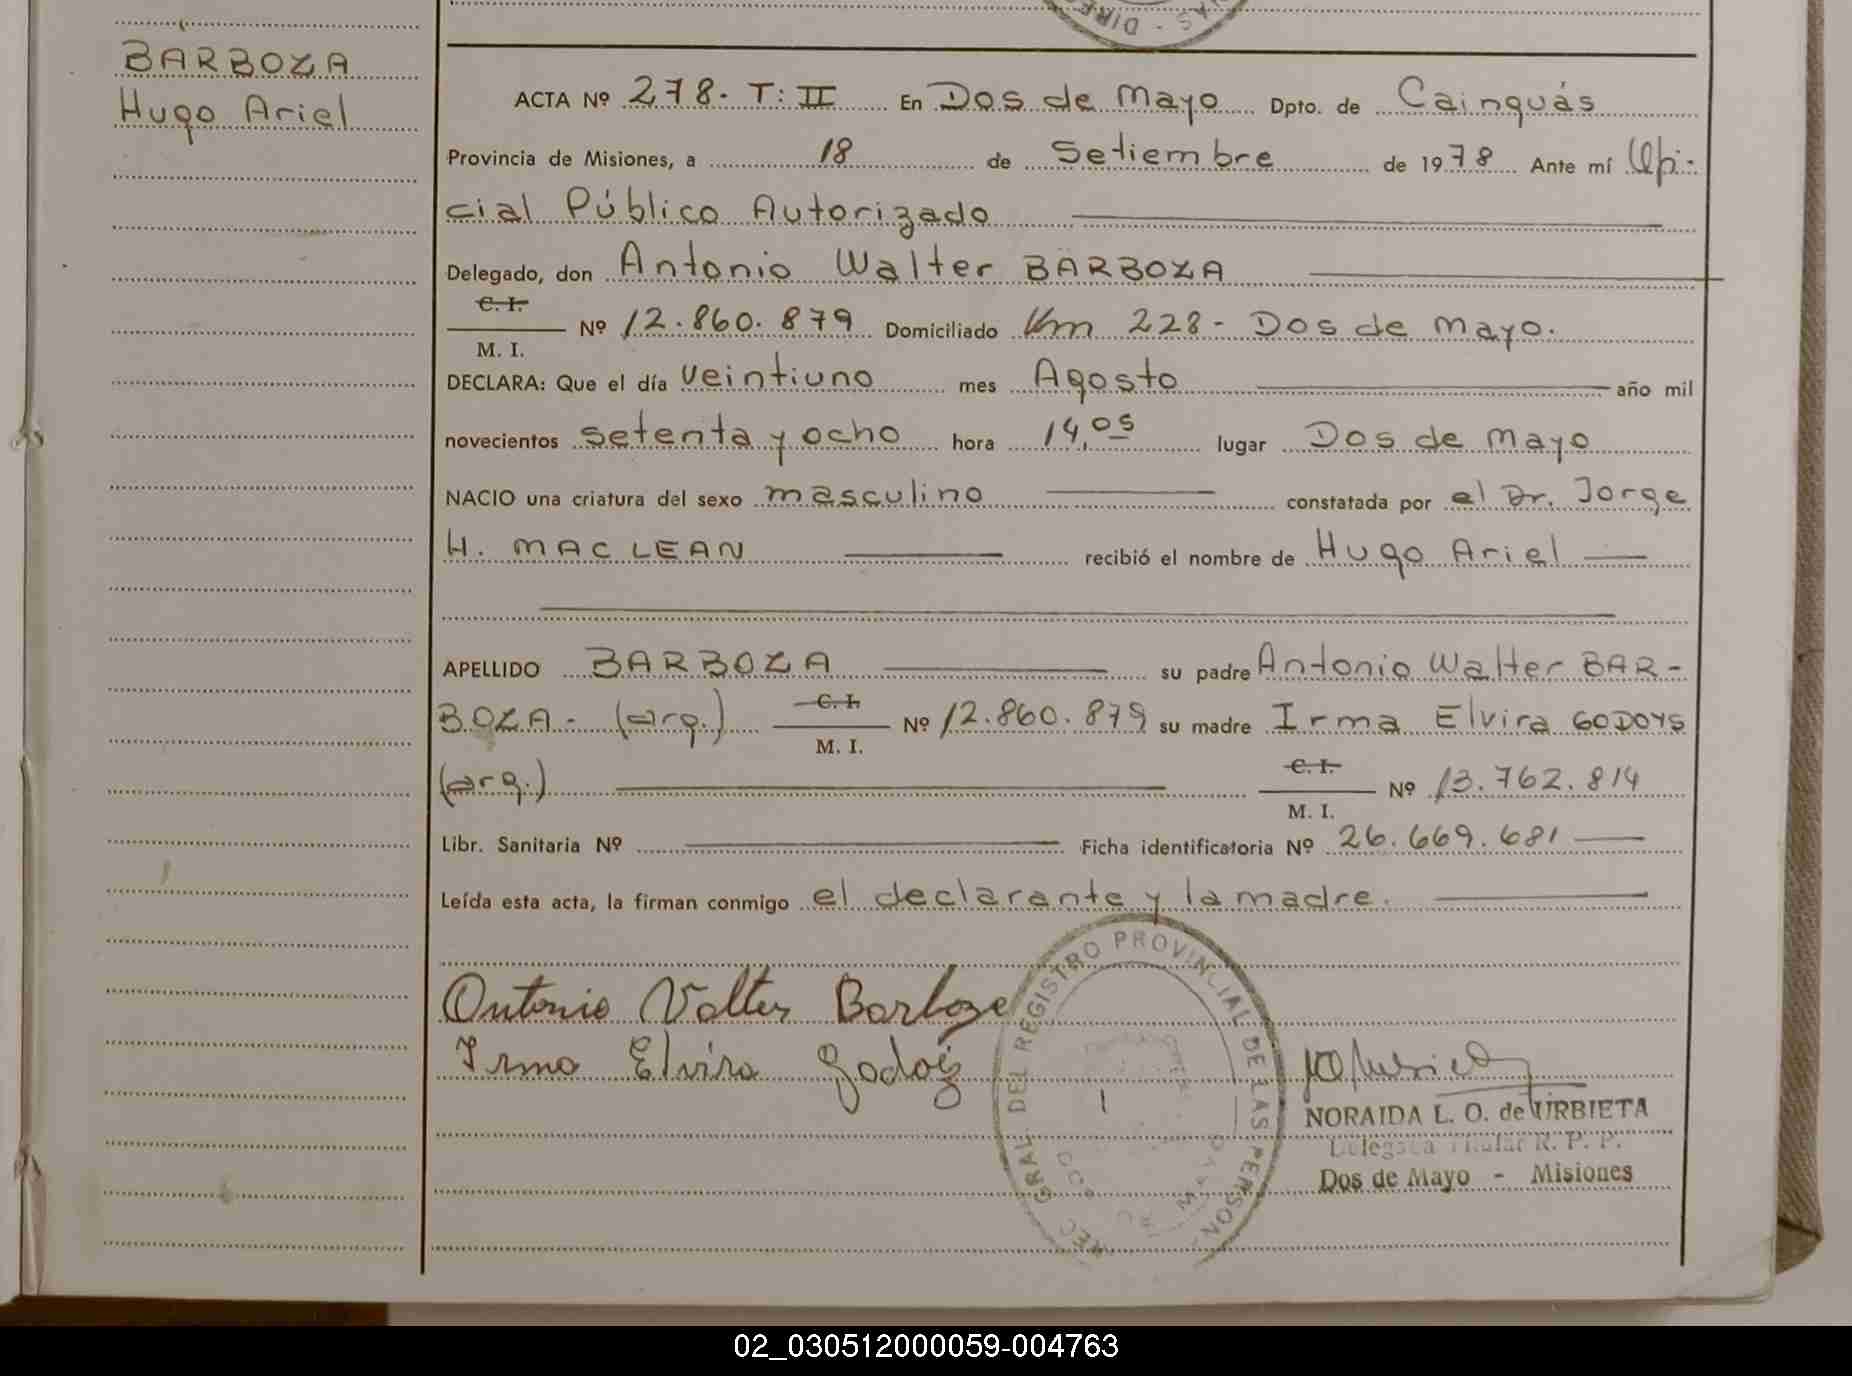 BARBOZA
Hugo Ariel
DIREC
ACTA Nº 278. T: II En Dos de Mayo Dpto. de Cainguás
Provincia de Misiones, a 18 de Setiembre de 1978 Ante mí Ofi-
cial Público Autorizado
Delegado, don Antonio Walter BARBOZA
C. I.
M. I.
Nº 12.860.879 Domiciliado Km 228 - Dos de Mayo.
DECLARA: Que el día veintiuno mes Agosto año mil
novecientos setenta y ocho hora 14,05 lugar Dos de Mayo
NACIO una criatura del sexo masculino constatada por el Dr. Jorge
H. MAC LEAN recibió el nombre de Hugo Ariel
APELLIDO BARBOZA su padre Antonio Walter BAR-
BOZA- (arg.) C. I. M. I. Nº 12.860.879 su madre Irma Elvira GODOYS
(arg.) C. I. M. I. Nº 13.762.814
Libr. Sanitaria Nº Ficha identificatoria Nº 26.669.681
Leída esta acta, la firman conmigo el declarante y la madre.
Antonio Valter Barboze
Irma Elvira Godoiz
GRAL. DEL REGISTRO PROVINCIAL DE LAS PERSON
NORAIDA L. O. de URBIETA
Delegada Titular R. P. P.
Dos de Mayo - Misiones
02_030512000059-004763